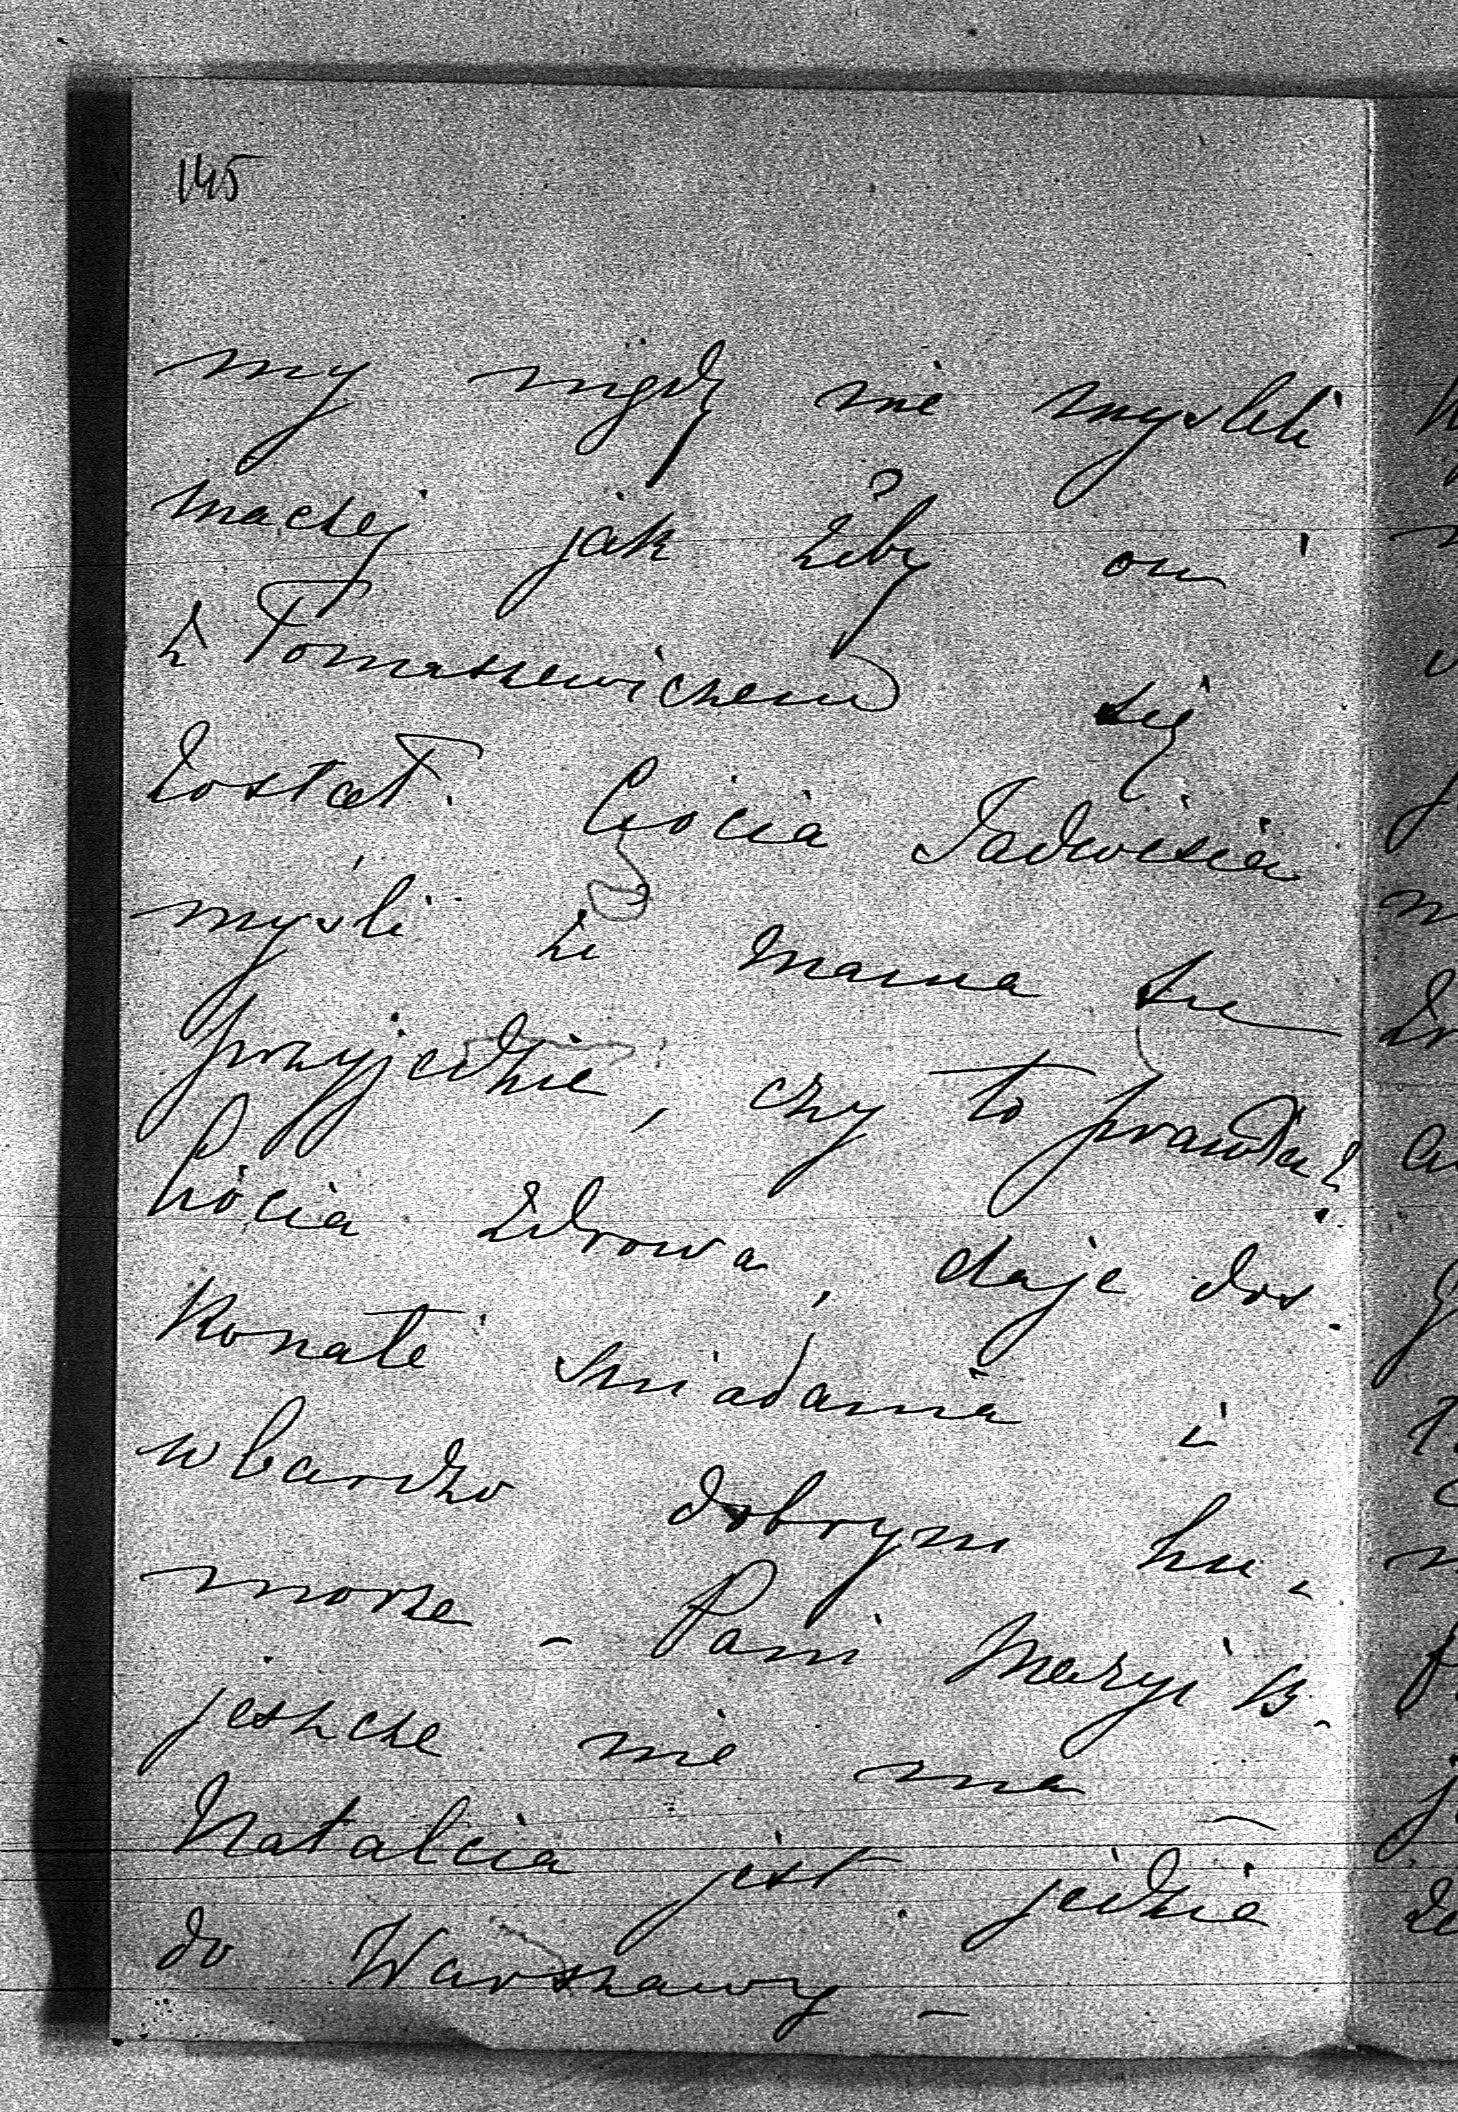 145
my nigdy nie mysleli
inaczej jak żeby on
z Tomaszewiczem się
został. Ciocia Jadwisia
myśli że Mama tu
przyjedzie, czy to prawda?
Ciocia zdrowa, daje dos-
konałe śniadania i
w bardzo dobrym hu-
morze – Pani Maryi B.
jeszcze nie ma –
Natalcia jest. jedzie
do Warszawy –